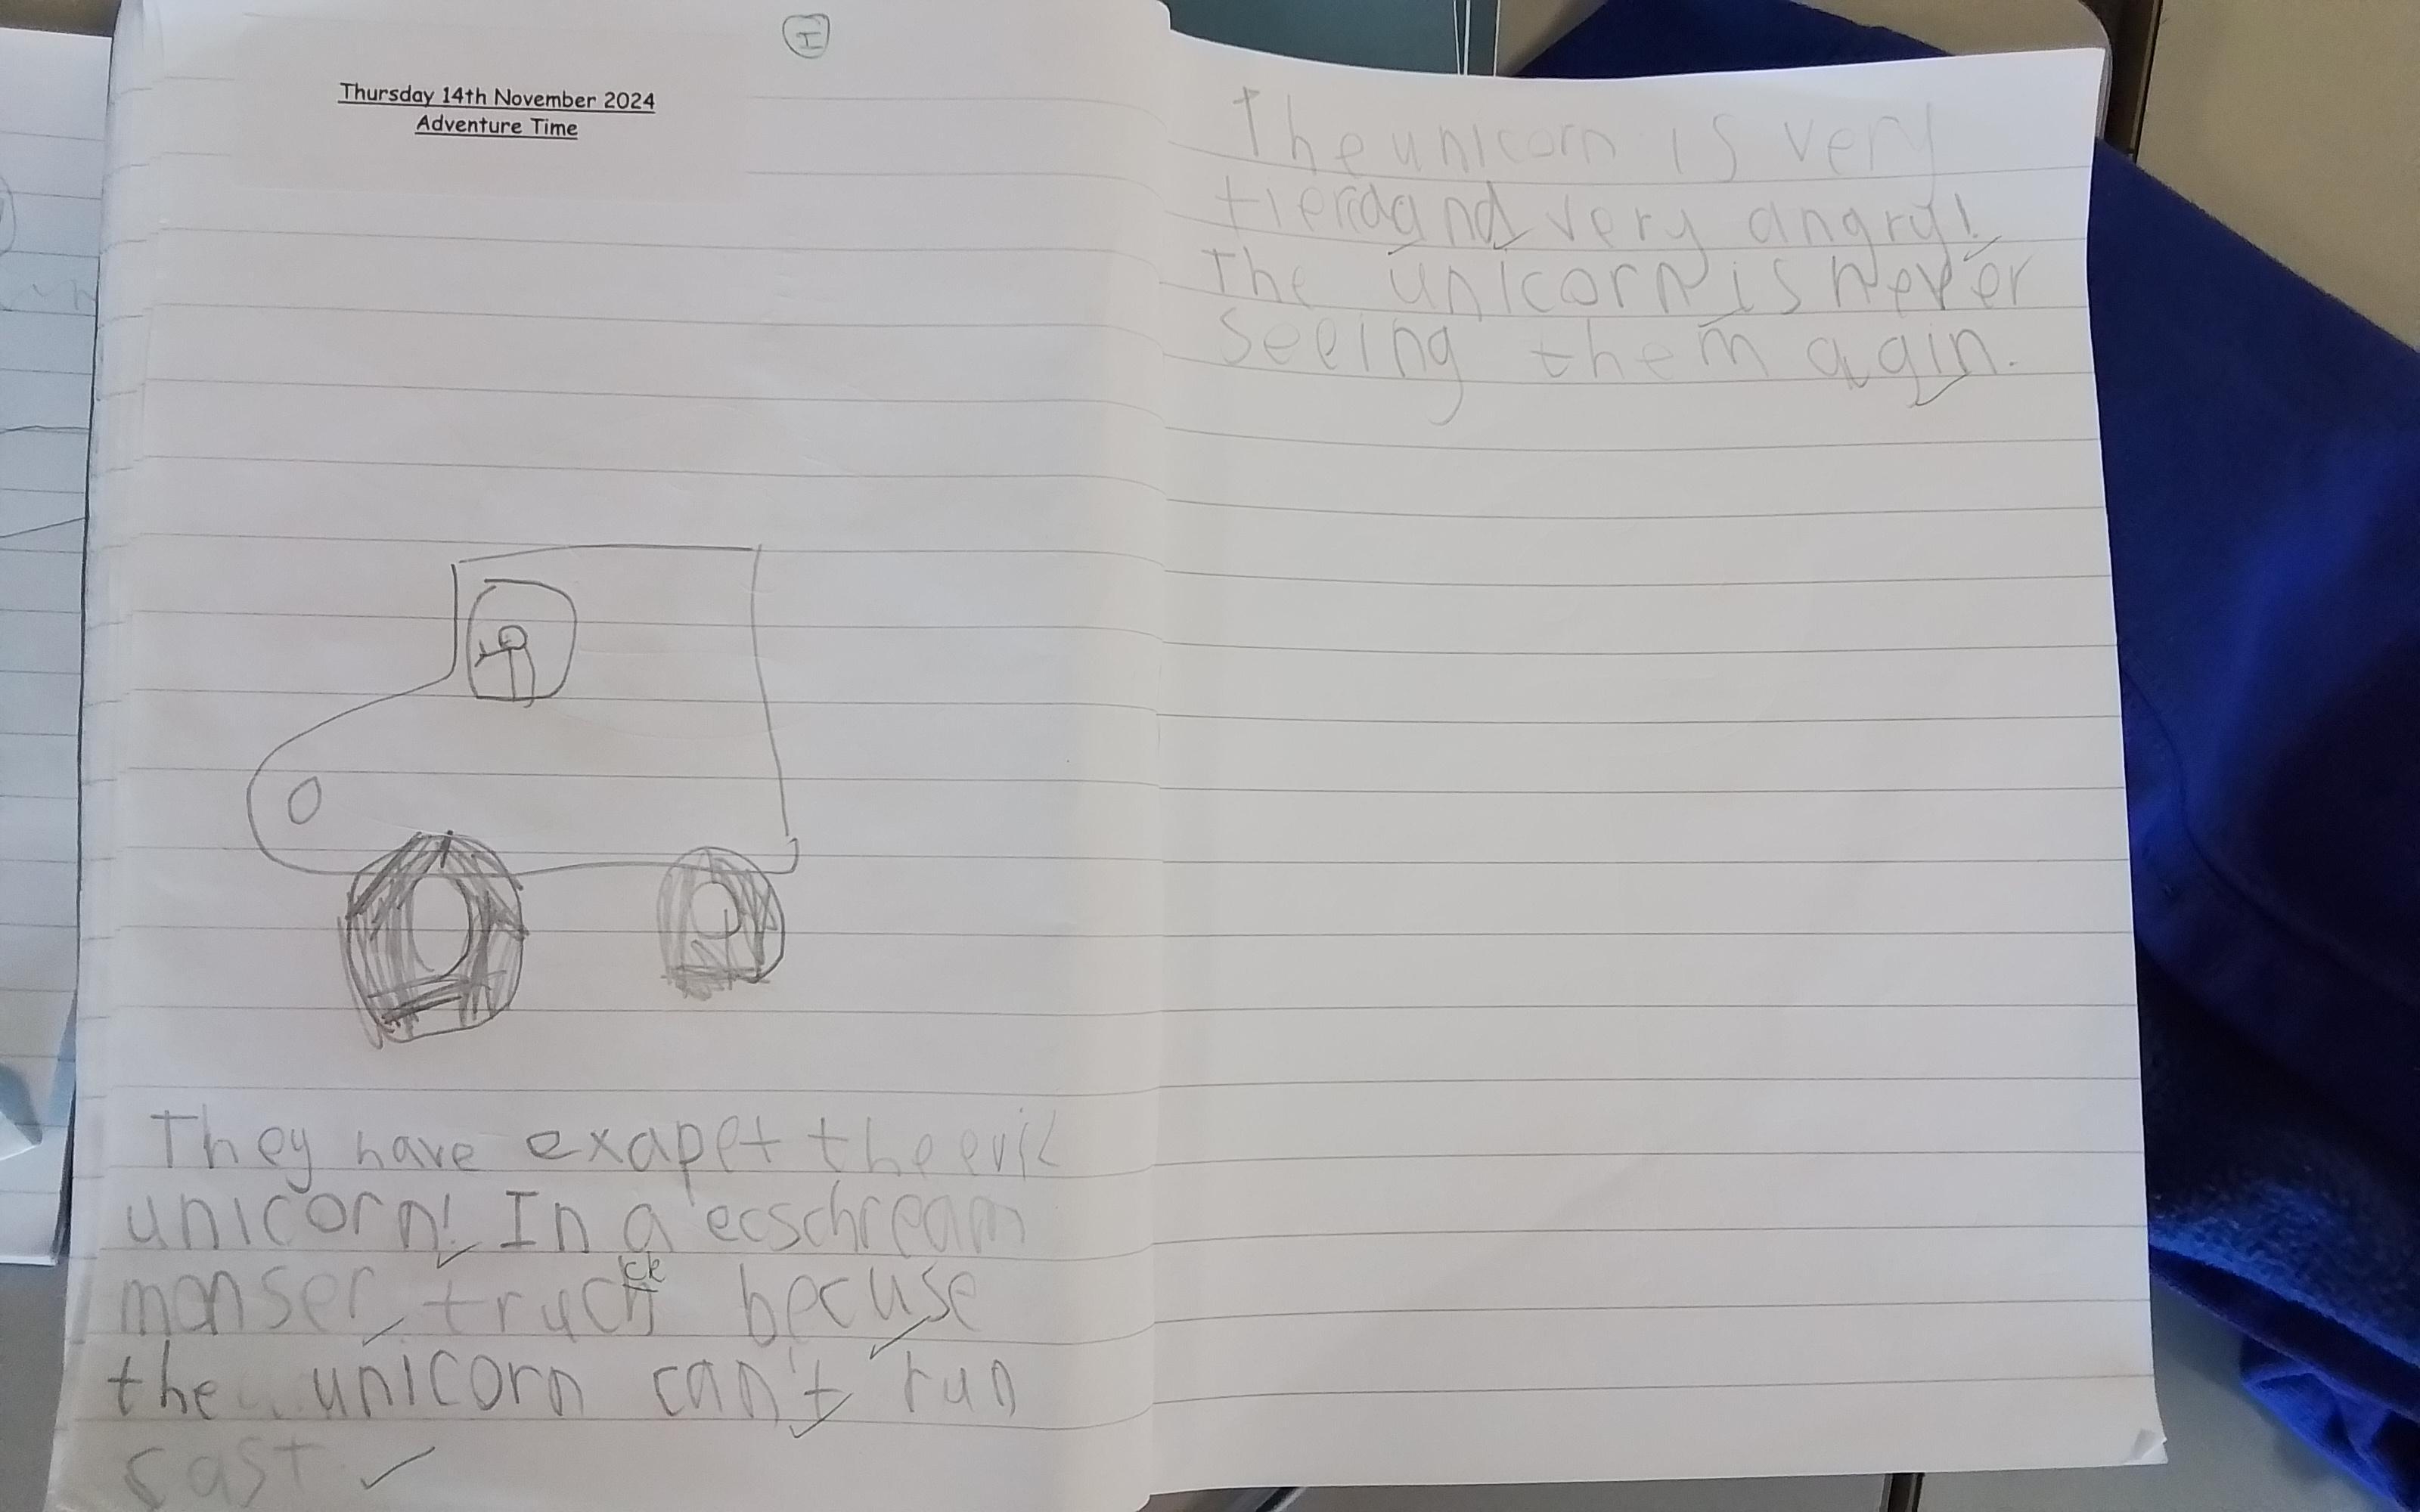 I
Thursday 14th November 2024
Adventure Time
They have exapet the evil
unicorn! In a ecschream
manser truck
ck
becuse
the unicorn can't run
sast
The unicorn is very
tierd and very angry!
The unicorn is never
seeing them agin.